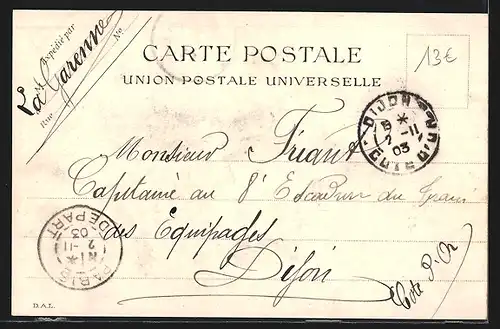 M
Expédié par
La Garenne
Rue
No
CARTE POSTALE
UNION POSTALE UNIVERSELLE
13€
DIJON
2-11
03
COTE D'OR
Monsieur Friant
Capitaine au 8e Escadron du Train
des Equipages
Dijon
Cote d'Or
PARIS
2-11
03
DEPART
D.A.L.